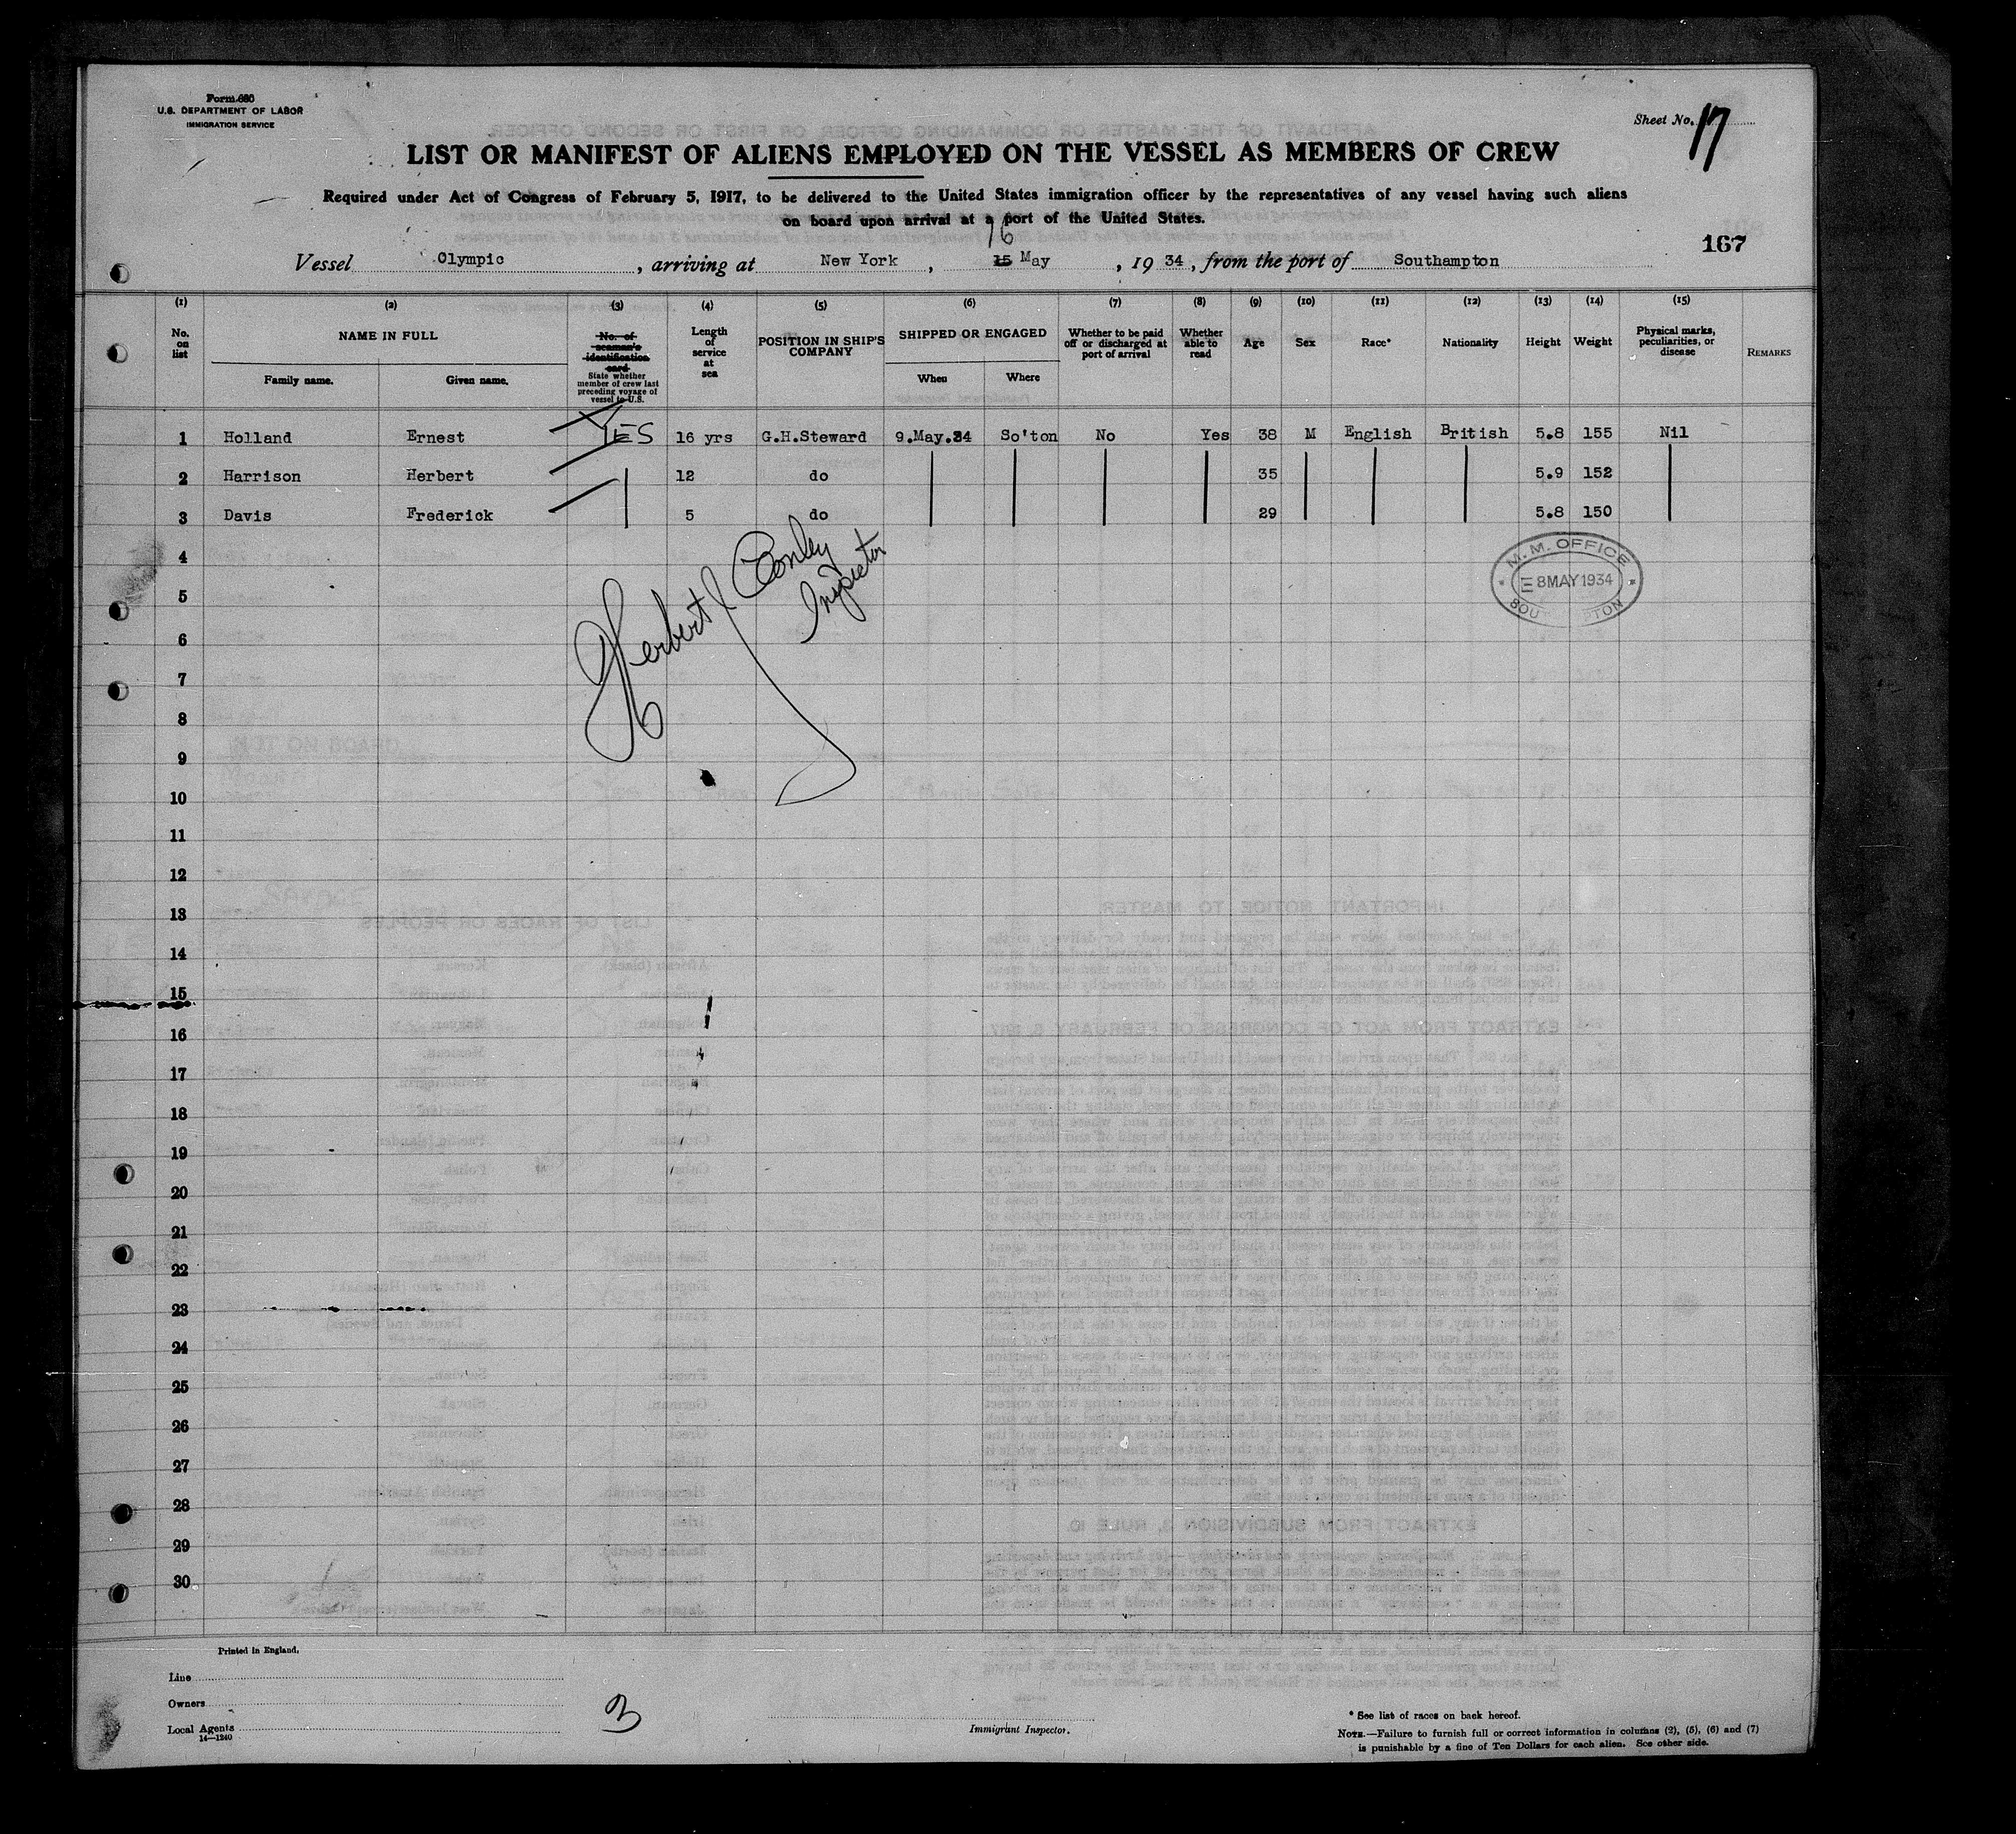 Form 680
U.S. DEPARTMENT OF LABOR
IMMIGRATION SERVICE
Sheet No. 17
LIST OR MANIFEST OF ALIENS EMPLOYED ON THE VESSEL AS MEMBERS OF CREW
Required under Act of Congress of February 5, 1917, to be delivered to the United States immigration officer by the representatives of any vessel having such aliens
on board upon arrival at a port of the United States.
167
16
Vessel Olympic, arriving at New York, 15 May, 1934, from the port of Southampton
(1) (2) (3) (4) (5) (6) (7) (8) (9) (10) (11) (12) (13) (14) (15)
No. on list NAME IN FULL Family name. Given name. No. of seaman's identification card State whether member of crew last preceding voyage of vessel to U.S. Length of service at sea POSITION IN SHIP'S COMPANY SHIPPED OR ENGAGED When Where Whether to be paid off or discharged at port of arrival Whether able to read Age Sex Race* Nationality Height Weight Physical marks, peculiarities, or disease REMARKS
1 Holland Ernest YES 16 yrs G.H.Steward 9.May.34 So'ton No Yes 38 M English British 5.8 155 Nil
2 Harrison Herbert 12 do 35 5.9 152
3 Davis Frederick 5 do 29 5.8 150
Herbert J Conley
Inspector
M.M. OFFICE
8 MAY 1934
SOU PTON
4
5
6
7
8
9
10
11
12
13
14
15
16
17
18
19
20
21
22
23
24
25
26
27
28
29
30
Printed in England.
Line
Owners
Local Agents
14—1240
3
Immigrant Inspector.
* See list of races on back hereof.
NOTE.—Failure to furnish full or correct information in columns (2), (5), (6) and (7)
is punishable by a fine of Ten Dollars for each alien. See other side.